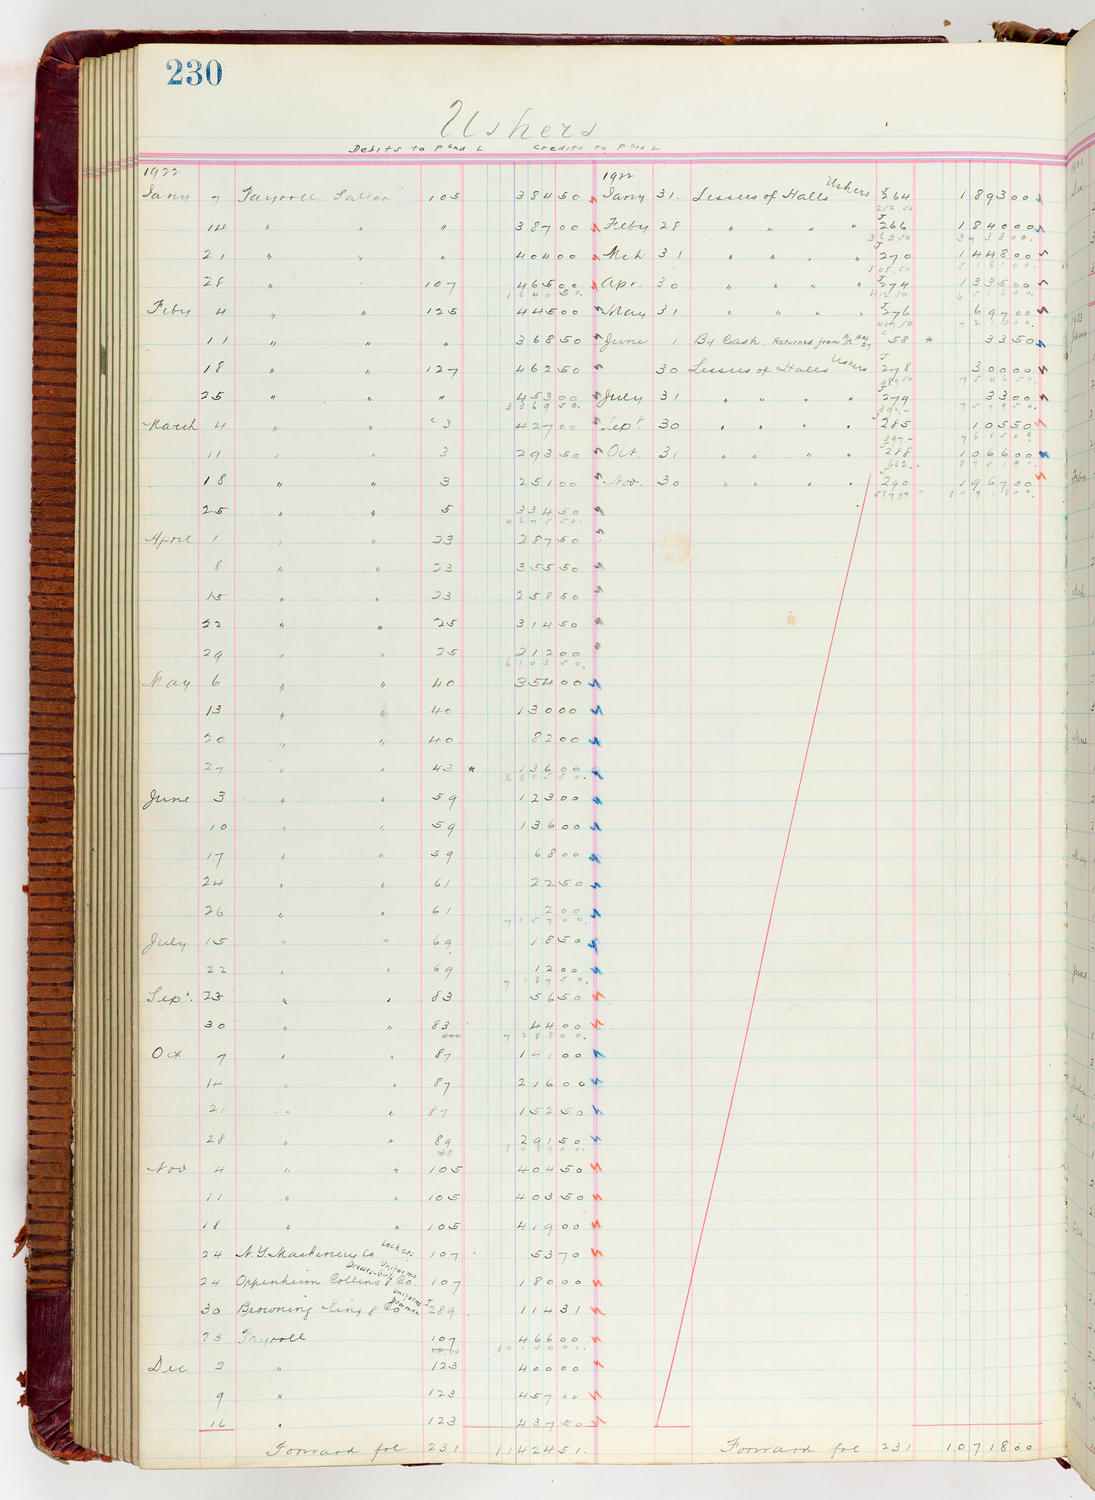 230
Ushers
Debits to P and L Credits to P and L
1922 1922
Jany 7 Payroll Salter 105 384 50 Jany 31. Lessees of Halls Ushers J 264 1893 00
252.50
14 " " " 387 00 Feby 28 " " " " J 266 1840 00
363.50 3733 00.
21 " " " 404 00 Mch 31 " " " " J 270 1448 00
505.50 5181 00.
28 " 107 465 00 Apr. 30 " " " " J 274 1335 00
1640 50. 412.50 6516 00.
Feby 4 " " 125 445 00 May 31 " " " " J 276 697 00
407.50 7213 00.
11 " " " 368 50 June 1 By Cash. Returned from P/R May 27 C 58 * 33 50
18 " " 127 462 50 30 Lessees of Halls Ushers J 278 300 00
7546 50.
25 " " " 453 00 July 31 " " " " J 279 33 00
3369 50. 392.- 7579 50.
March 4 " " C 3 427 00 Sept. 30 " " " " J 285 105 50
397- 7685 00.
11 " " 3 293 50 Oct. 31 " " " " J 288 1066 00
662.- 8751 00.
18 " " 3 251 00 Nov. 30 " " " " J 290 1967 00
10718 00.
25 " " 5 334 50
4675 50.
April 1 " " 23 287 50
8 " " 23 355 50
15 " " 23 258 50
22 " " 25 314 50
29 " " 25 212 00
6103 50.
May 6 " " 40 354 00
13 " " 40 130 00
20 " " 40 82 00
27 " " 43 * 136 00
6805 50.
June 3 " " 59 123 00
10 " " 59 136 00
17 " " 59 68 00
24 " " 61 22 50
26 " " 61 2 00
7157 00.
July 15 " " 69 18 50
22 " " 69 12 00
7187 50.
Sept. 23 " " 83 56 50
30 " " 83 44 00
7288 00.
Oct 7 " " 87 141 00
14 " " 87 216 00
21 " " 87 152 50
28 " " 89 291 50
8089 00.
Nov 4 " " 105 404 50
11 " " 105 403 50
18 " " 105 419 00
24 N.Y. Machinery Co Lockers 107 53 70
24 Oppenheim Collins & Co. Uniforms Dresses-Girls 107 180 00
30 Browning King & Co Uniforms Doormen J 289 114 31
25 Payroll 107 466 00
10130 01.
Dec. 2 " 123 400 00
9 " 123 457 00
16 " 123 437 50
Forward fol 231 11424 51. Forward fol 231 10718 00